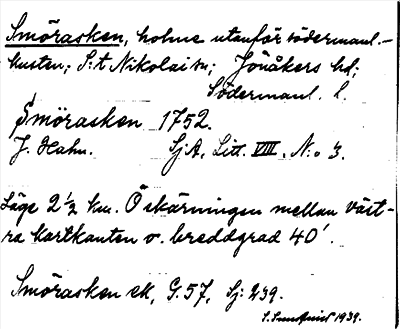 Smörasken, holme utanför södermanl.-
kusten; S:t Nikolai sn; Jönåkers hd;
Södermanl. l.
Smörasken 1752.
J. Hahn. Sj.A. Litt. VIII. N:o 3.
Läge 2 1/2 km. Ö skärningen mellan väst-
ra kartkanten o. breddgrad 40'.
Smörasken ek, G. 57, Sj: 239.
1939.